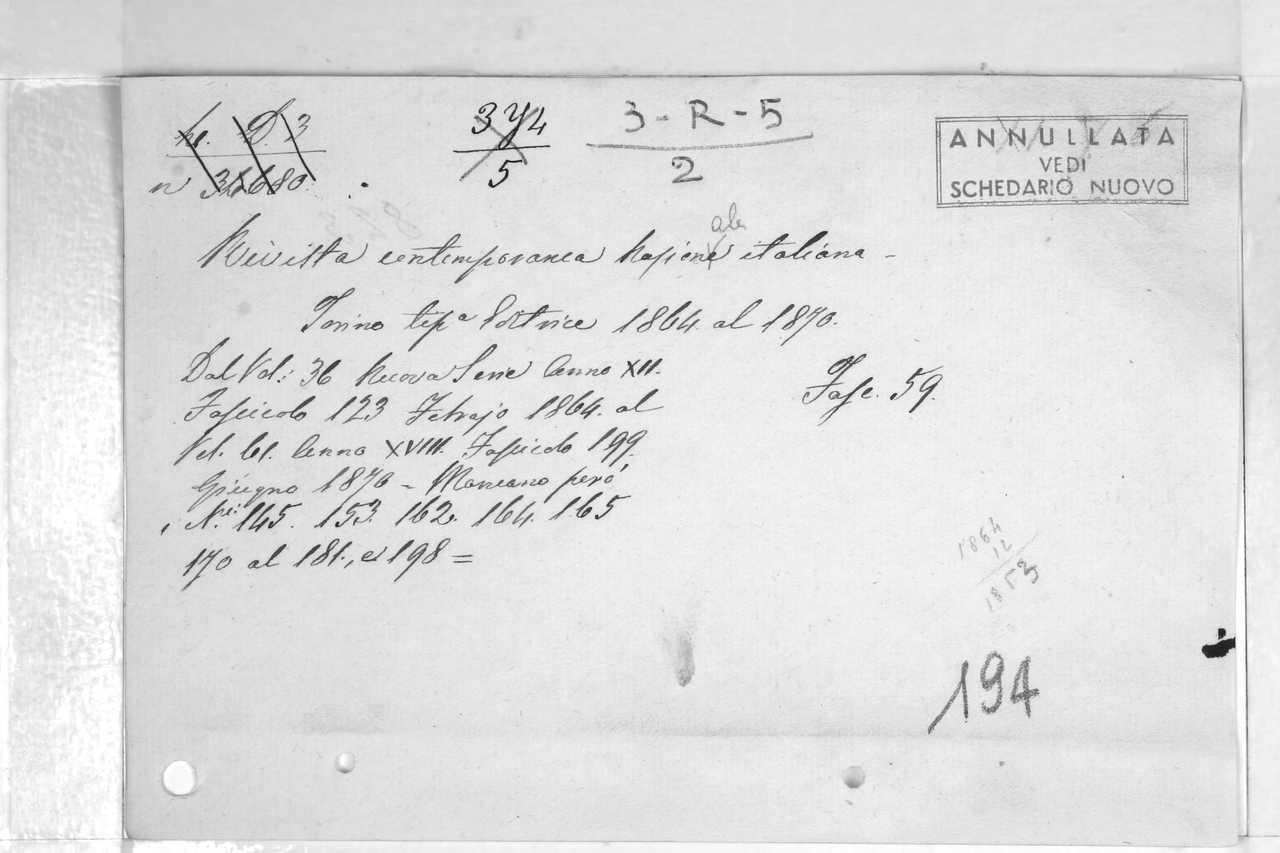 D. 3
n 32680.
3 Y 4
5
3-R-5
2
ANNULLATA
VEDI
SCHEDARIO NUOVO
ale
Rivista contemporanea Nazione italiana -
Torino tipª Editrice 1864 al 1870.
Dal Vol: 36 Nuova Serie Anno XII.
Fascicolo 123 Febrajo 1864. al
Vol. 61. Anno XVIII. Fascicolo 199.
Giugno 1870 - Mancano però
Nri: 145. 153. 162. 164. 165
170 al 181., e 198 =
Fasc. 59.
1864
12
1853
194